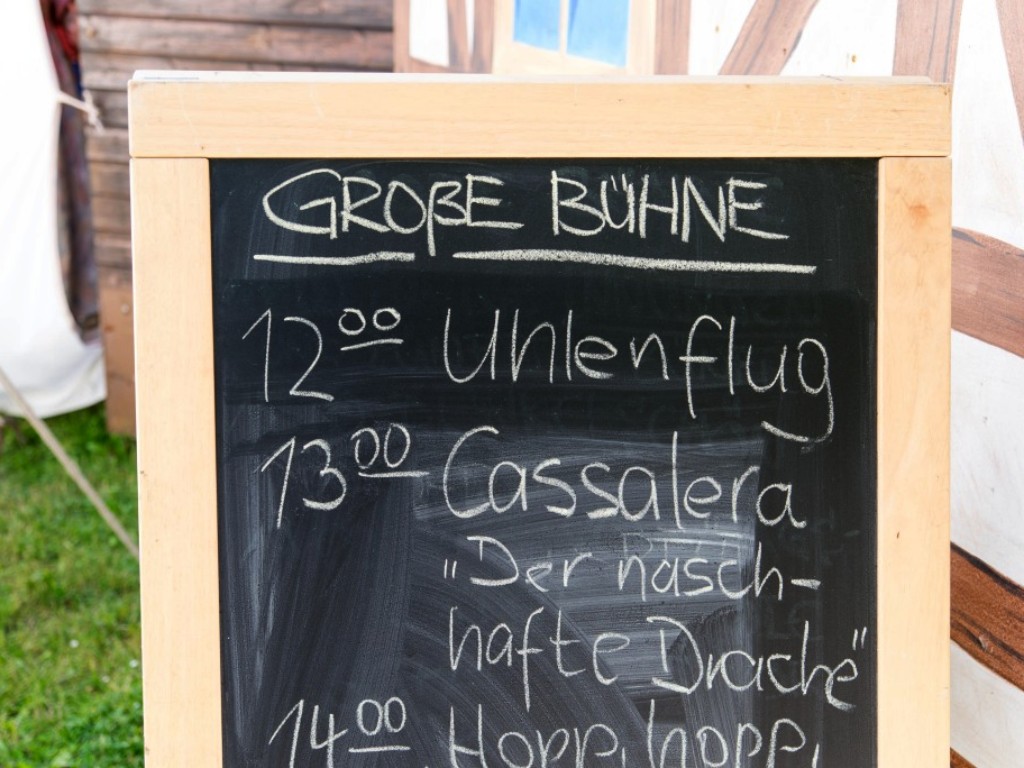 GROßE BÜHNE
12 00 Uhlenflug
13 00 Cassalera
„Der nasch-
hafte Drache"
14 00 Hopp, hopp,